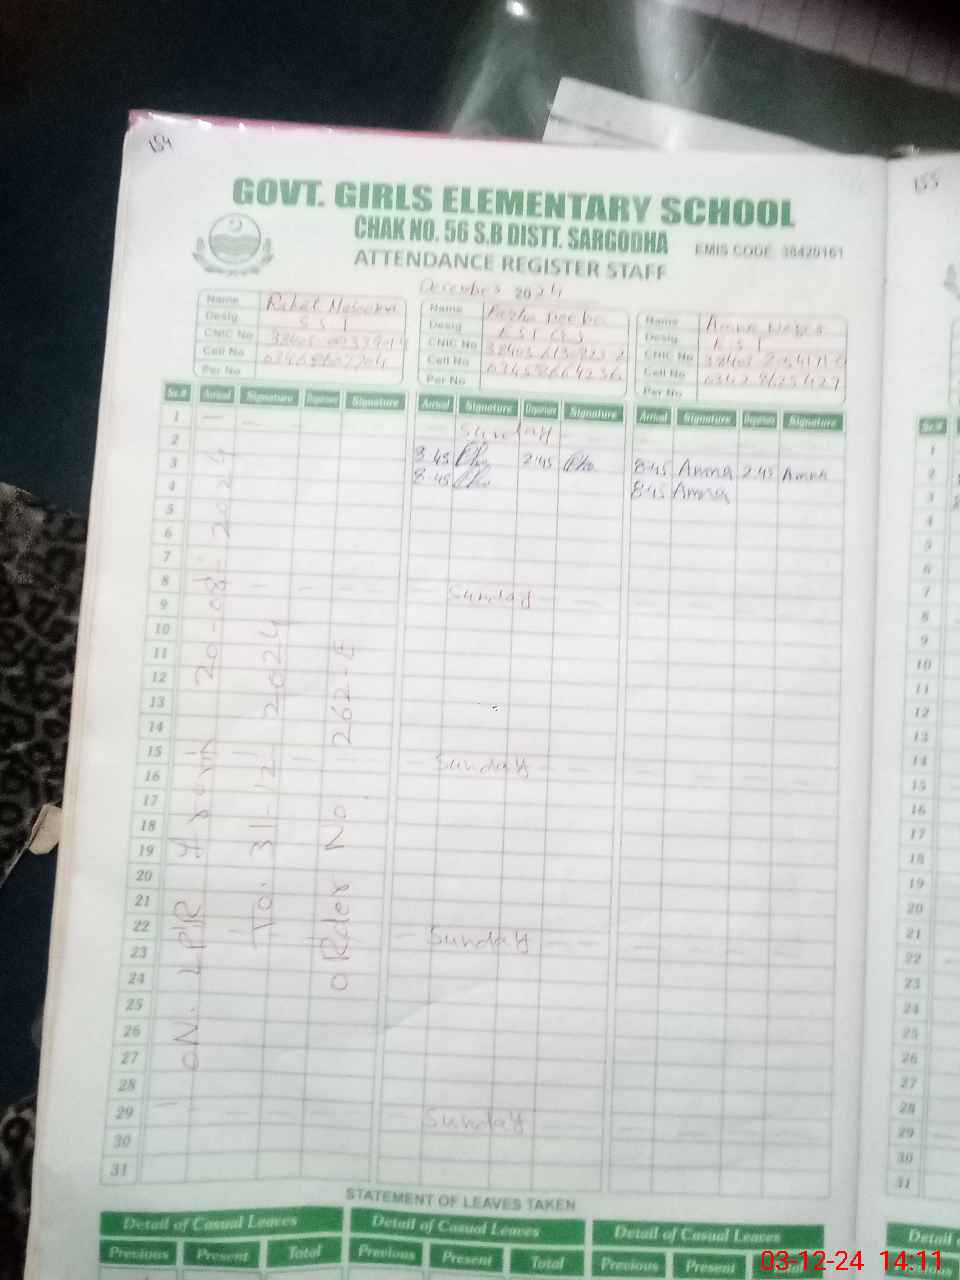 154
155
GOVT. GIRLS ELEMENTARY SCHOOL
CHAK NO. 56 S.B DISTT. SARGODHA
EMIS CODE: 38420161
ATTENDANCE REGISTER STAFF
December 2024
Name Rahat
Desig. S S T
CNIC No
Cell No
Per No
Name
Desig
CNIC No
Cell No
Per No
Name Amna
Desig. E S T
CNIC No
Cell No
Per No
Sr.# Arrival Signature Departure Signature Arrival Signature Departure Signature Arrival Signature Departure Signature Sr.#
1 Sunday 1
2 8:45 2:45 8:45 Amna 2:45 Amna 2
3 8:45 8:45 Amna 3
4 4
5 5
6 6
7 7
8 Sunday 8
9 9
10 10
11 11
12 12
13 13
14 14
15 Sunday 15
16 16
17 17
18 18
19 19
20 20
21 21
22 Sunday 22
23 23
24 24
25 25
26 26
27 27
28 28
29 Sunday 29
30 30
31 31
ON. LPR 20-08-2024
To. 31-12-2024
oRder No 262-E
STATEMENT OF LEAVES TAKEN
Detail of Casual Leaves Detail of Casual Leaves Detail of Casual Leaves Detail
Previous Present Total Previous Present Total Previous Present Previous
03-12-24 14:11